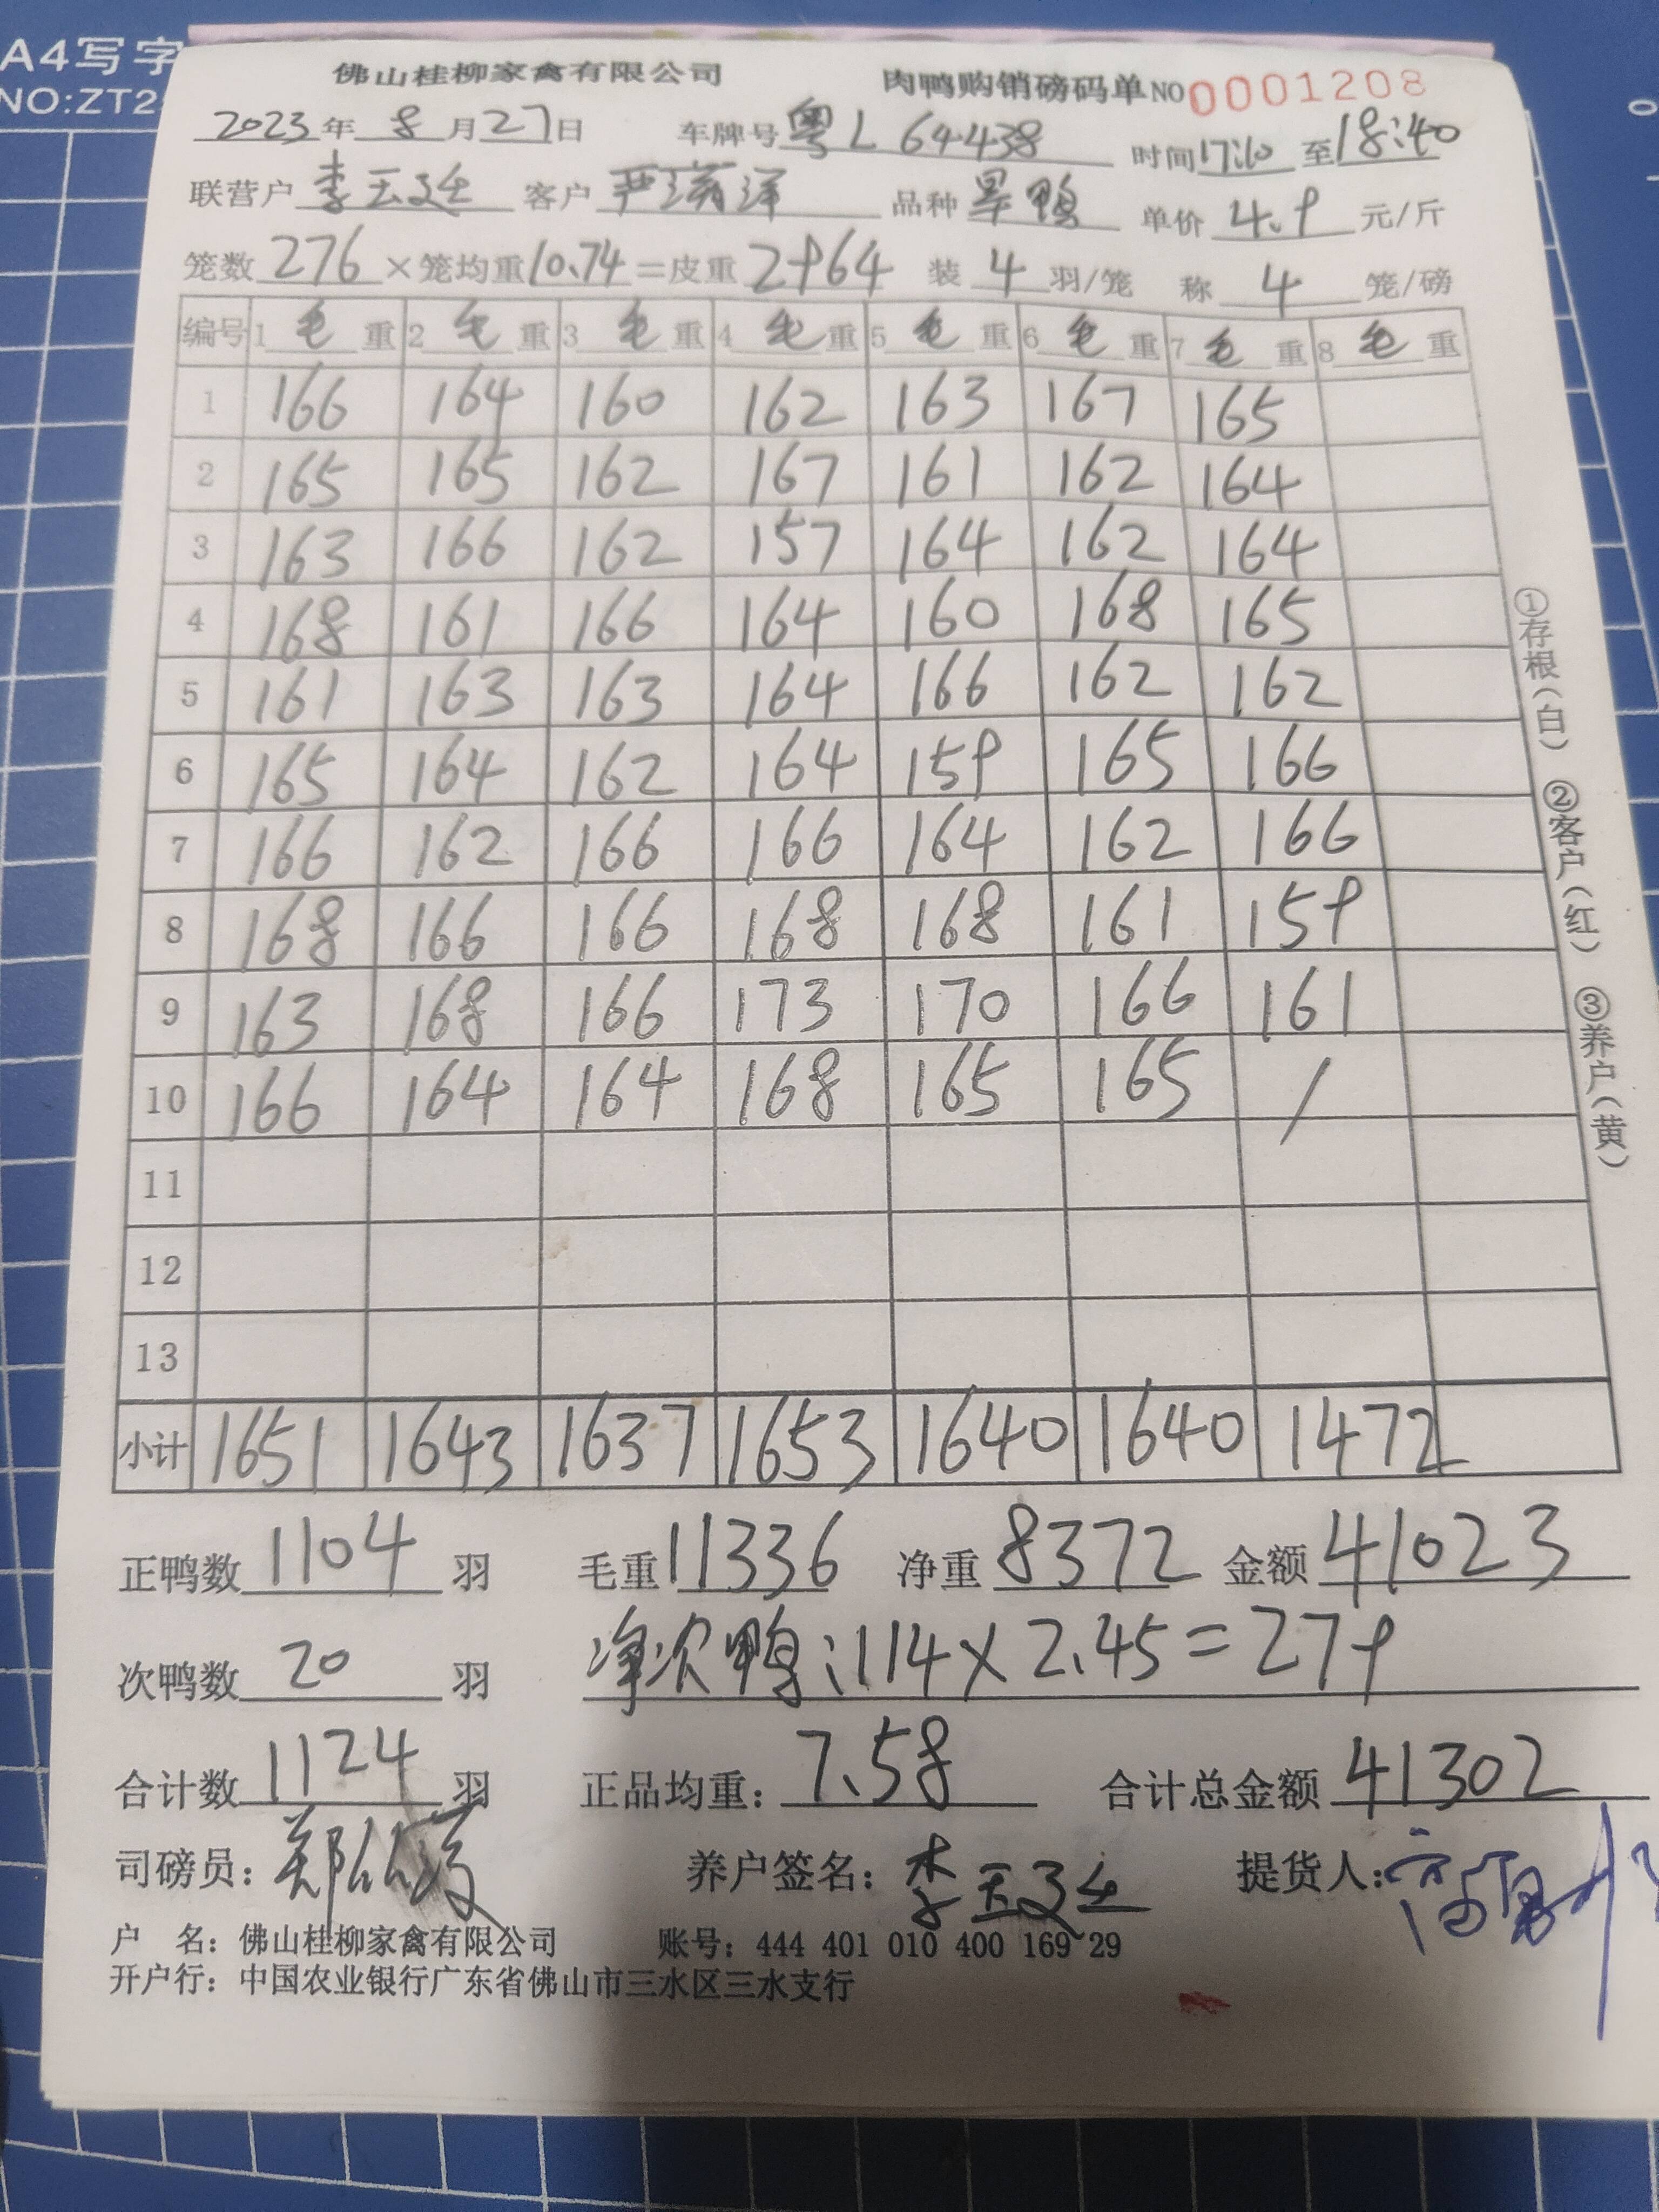 A4写字
NO:ZT2
佛山桂柳家禽有限公司 肉鸭购销磅码单 NO 0001208
2023年 8月27日 车牌号 粤L 64438 时间 17:10 至 18:40
联营户 李玉廷 客户 严满洋 品种 旱鸭 单价 4.9 元/斤
笼数 276 ×笼均重 10.74 =皮重 2964 装 4 羽/笼 称 4 笼/磅
编号 1 毛 重 2 毛 重 3 毛 重 4 毛 重 5 毛 重 6 毛 重 7 毛 重 8 毛 重
1 166 164 160 162 163 167 165
2 165 165 162 167 161 162 164
3 163 166 162 157 164 162 164
4 168 161 166 164 160 168 165
5 161 163 163 164 166 162 162
6 165 164 162 164 159 165 166
7 166 162 166 166 164 162 166
8 168 166 166 168 168 161 159
9 163 168 166 173 170 166 161
10 166 164 164 168 165 165 /
11
12
13
小计 1651 1643 1637 1653 1640 1640 1472
①存根(白) ②客户(红) ③养户(黄)
正鸭数 1104 羽 毛重 11336 净重 8372 金额 41023
次鸭数 20 羽 净次鸭:114×2.45=279
合计数 1124 羽 正品均重: 7.58 合计总金额 41302
司磅员: 郑 养户签名: 李玉廷 提货人:
户 名: 佛山桂柳家禽有限公司 账号: 444 401 010 400 169 29
开户行: 中国农业银行广东省佛山市三水区三水支行